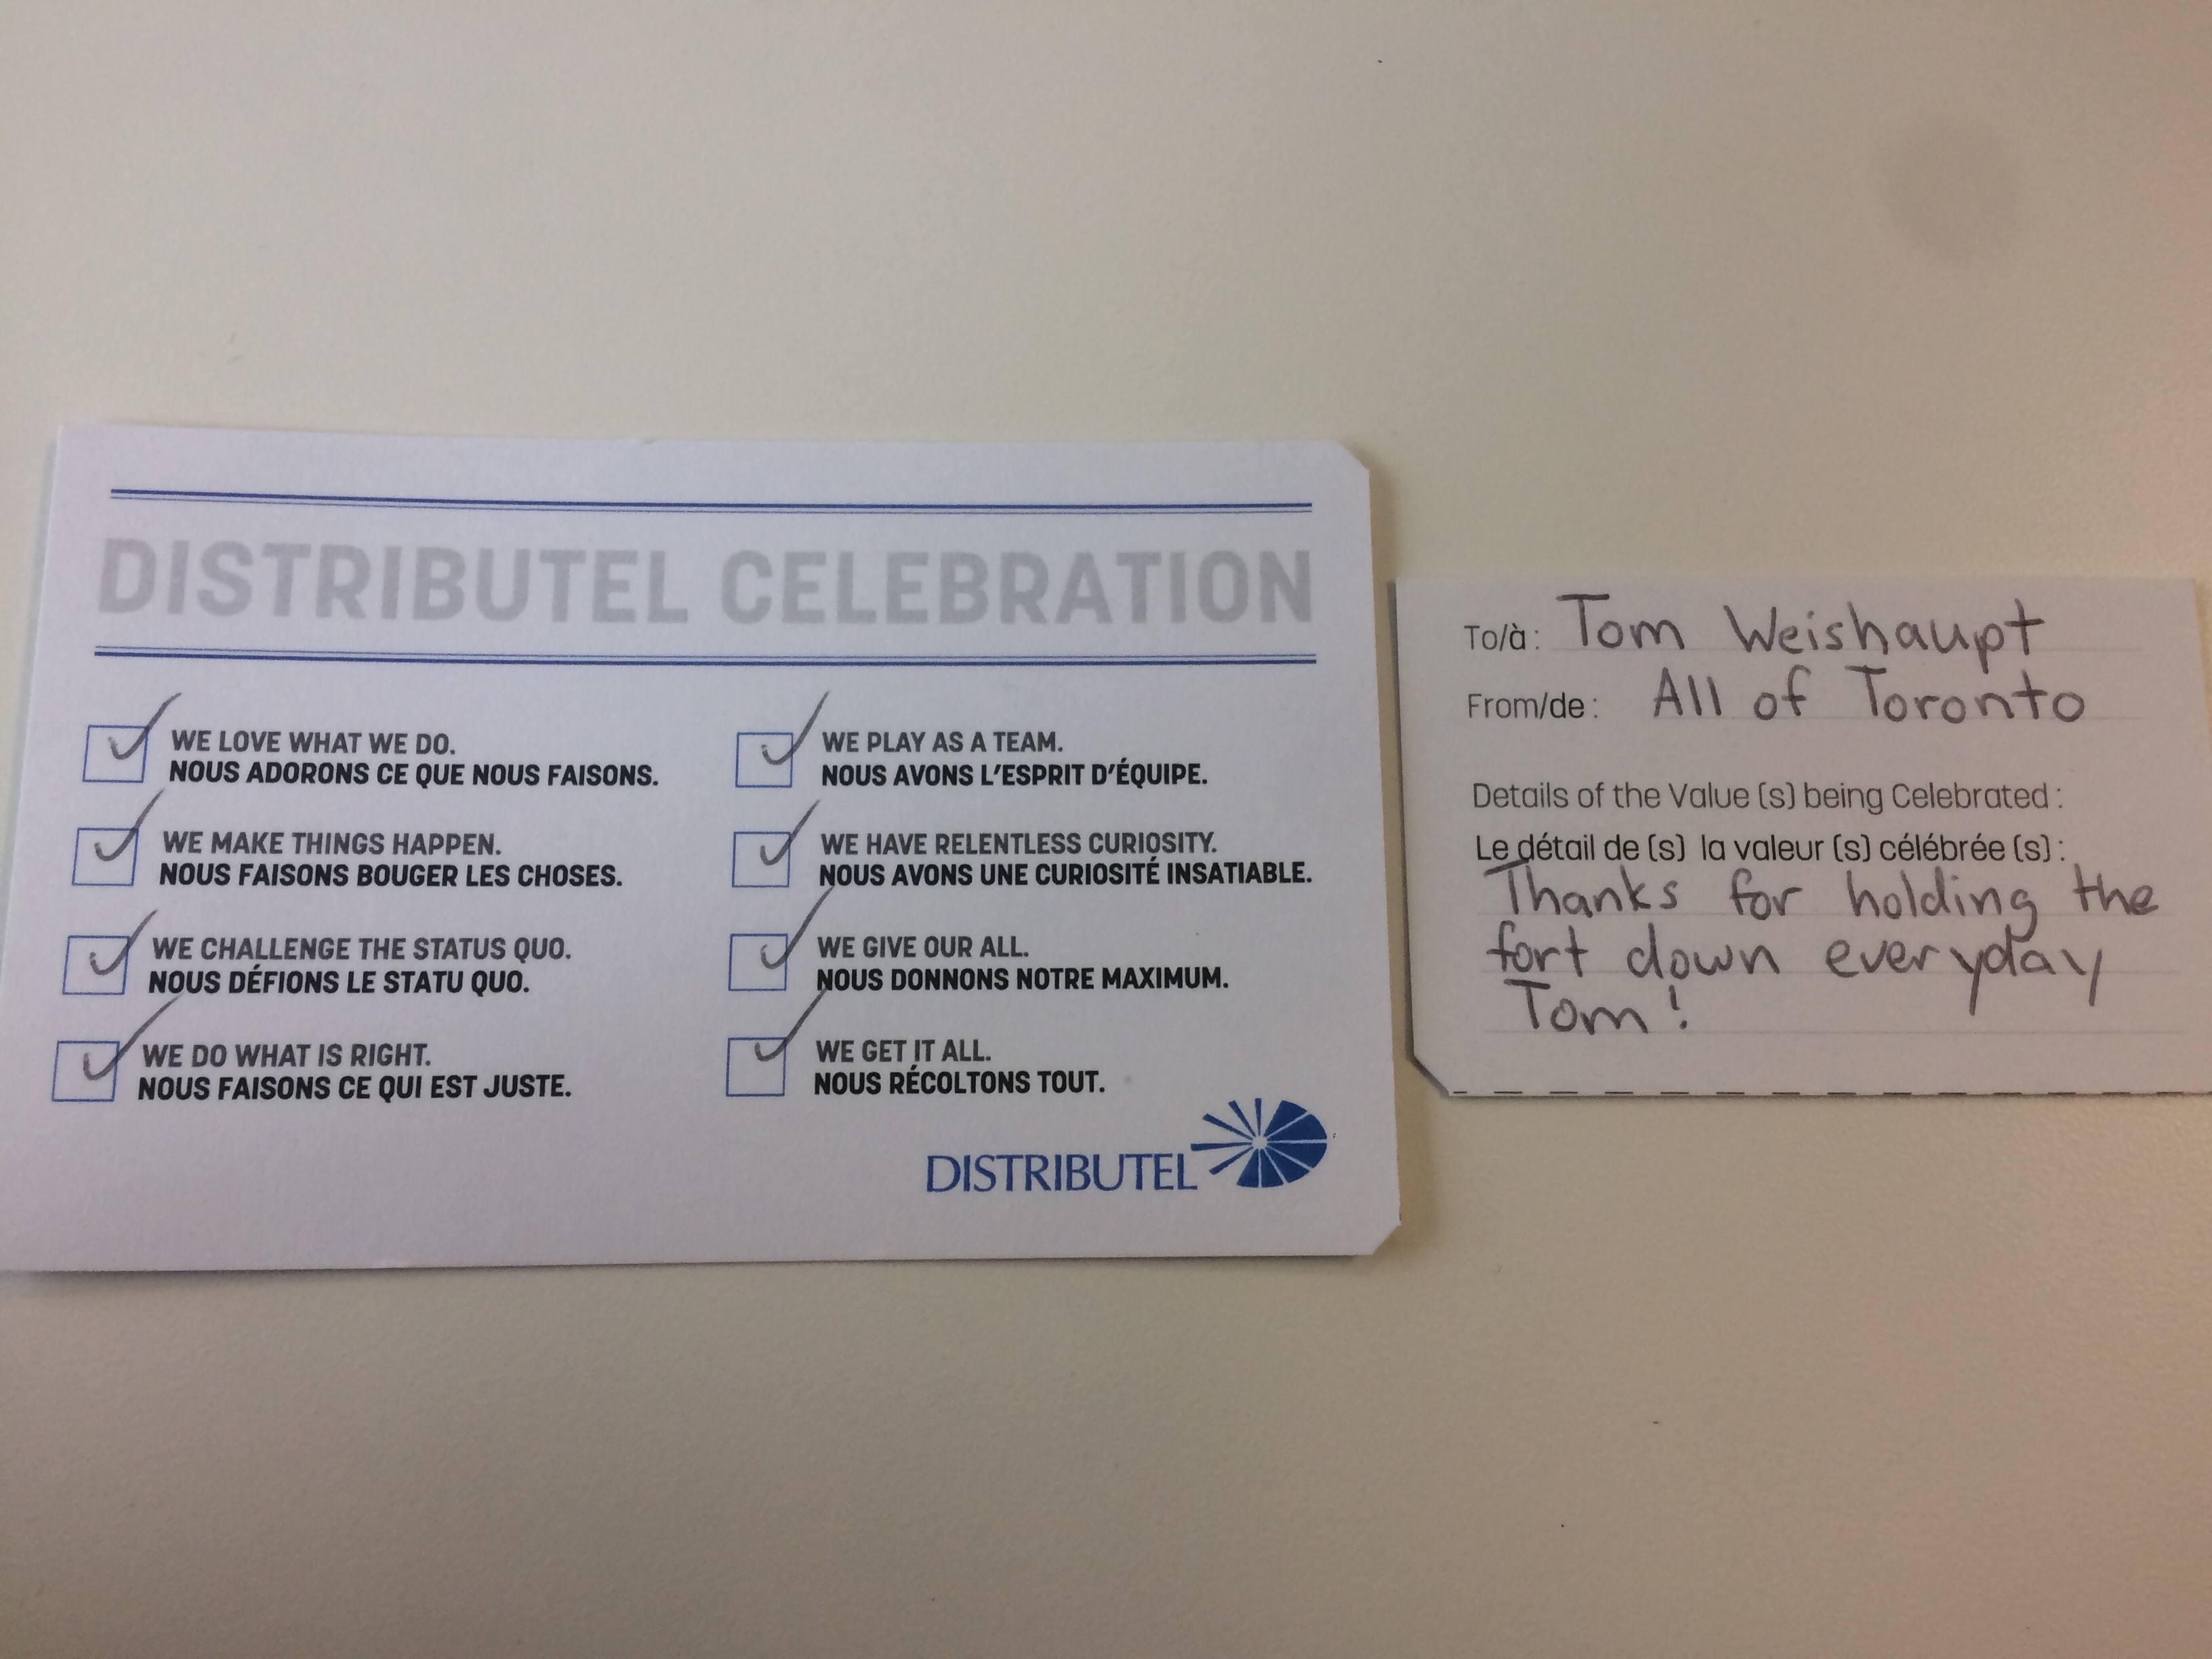 DISTRIBUTEL CELEBRATION
WE LOVE WHAT WE DO.
NOUS ADORONS CE QUE NOUS FAISONS.
WE MAKE THINGS HAPPEN.
NOUS FAISONS BOUGER LES CHOSES.
WE CHALLENGE THE STATUS QUO.
NOUS DÉFIONS LE STATU QUO.
WE DO WHAT IS RIGHT.
NOUS FAISONS CE QUI EST JUSTE.
WE PLAY AS A TEAM.
NOUS AVONS L'ESPRIT D'ÉQUIPE.
WE HAVE RELENTLESS CURIOSITY.
NOUS AVONS UNE CURIOSITÉ INSATIABLE.
WE GIVE OUR ALL.
NOUS DONNONS NOTRE MAXIMUM.
WE GET IT ALL.
NOUS RÉCOLTONS TOUT.
DISTRIBUTEL
To/à: Tom Weishaupt
From/de: All of Toronto
Details of the Value (s) being Celebrated:
Le détail de (s) la valeur (s) célébrée (s):
Thanks for holding the
fort down everyday
Tom!